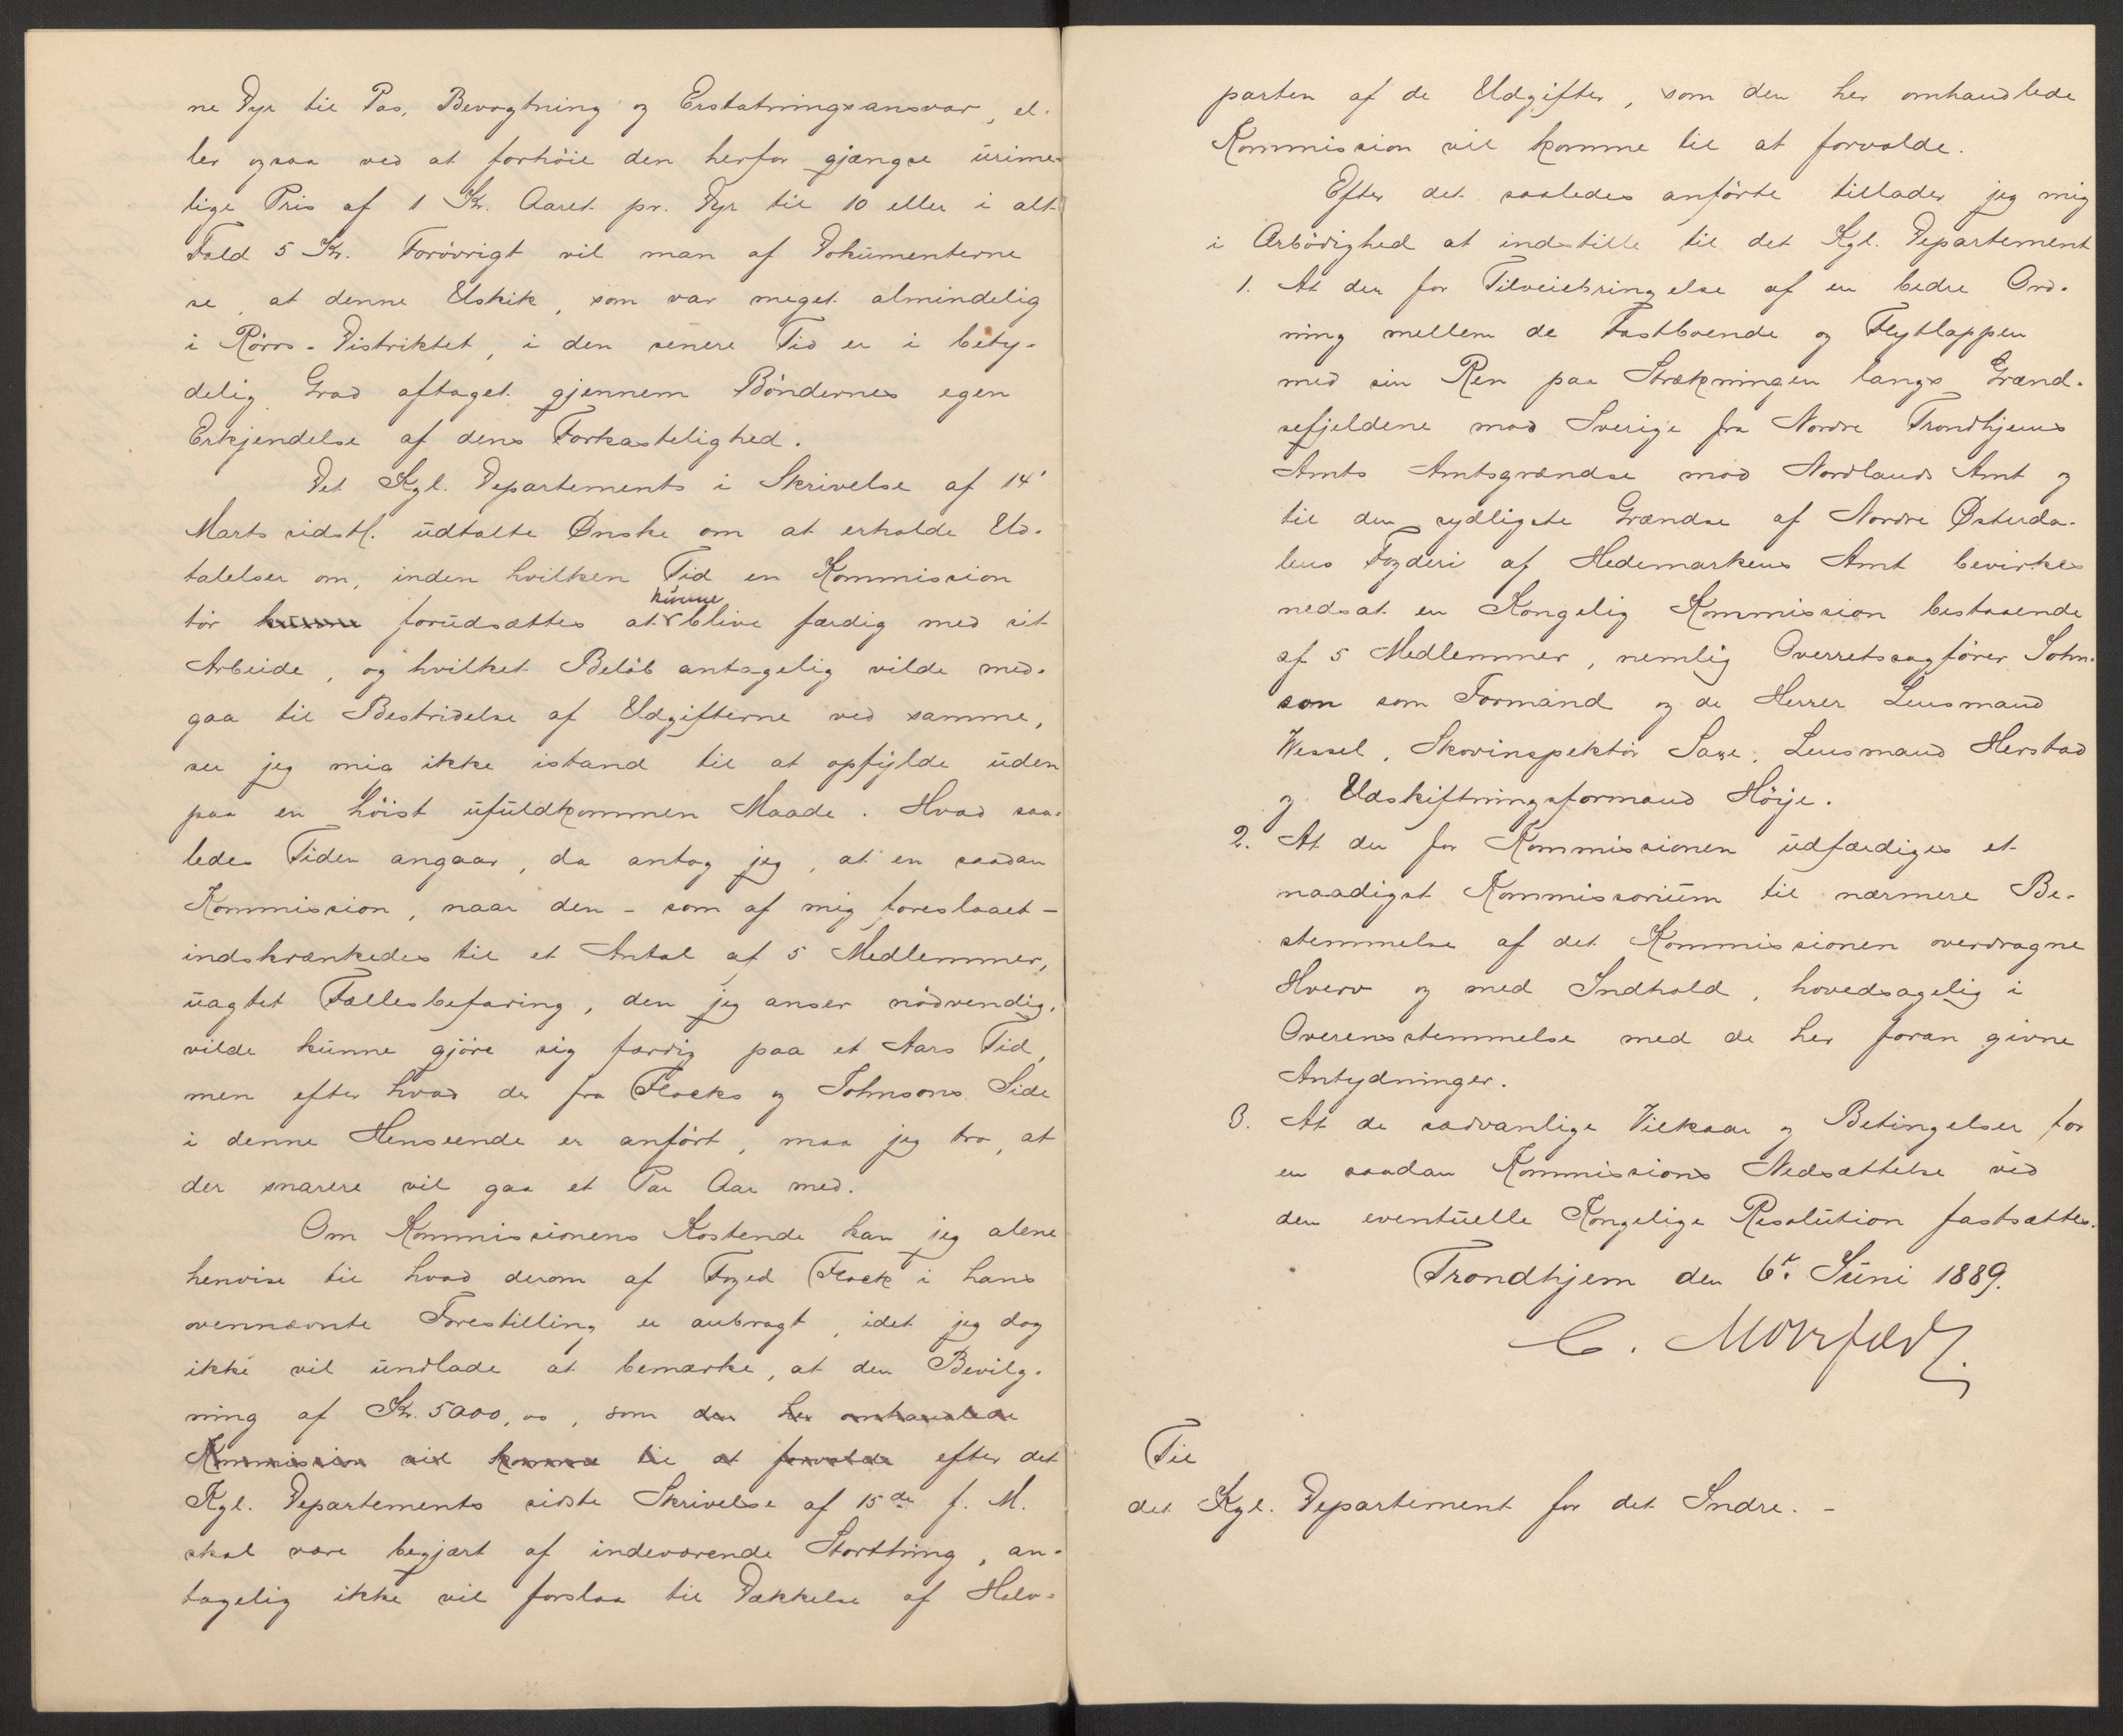 ne Dyr til Pas, Bevogtning og Erstatningsansvar, el-
ler ogsaa ved at forhöie den herfor gjængse urime-
lige Pris af 1 Kr. Aaret pr. Dyr til 10 eller i alt
Fald 5 Kr. Forövrigt vil man af Dokumenterne
se, at denne Uskik, som var meget almindelig
i Röros-Distriktet, i den senere Tid er i bety-
delig Grad aftaget gjennem Böndernes egen
Erkjendelse af dens Forkastelighed.
Det Kgl. Departements i Skrivelse af 14'
Marts sidstl. udtalte Ønske om at erholde Ud-
talelser om, inden hvilken Tid en Kommission
kunne
tör kunne forudsættes at blive færdig med sit
Arbeide, og hvilket Belöb antagelig vilde med-
gaa til Bestridelse af Udgifterne ved samme,
ser jeg mig ikke istand til at opfylde uden
paa en höist ufuldkommen Maade. Hvad saa-
ledes Tiden angaar, da antog jeg, at en saadan
Kommission, naar den - som af mig foreslaaet -
indskrænkedes til et Antal af 5 Medlemmer,
uagtet Fællesbefaring, den jeg anser nödvendig,
vilde kunne gjöre sig færdig paa et Aars Tid,
men efter hvad der fra Flocks og Johnsons Side
i denne Henseende er anfört, maa jeg tro, at
der snarere vil gaa et Par Aar med.
Om Kommissionens Kostende kan jeg alene
henvise til hvad derom af Foged Flock i hans
ovennævnte Forestilling er anbragt, idet jeg dog
ikke vil undlade at bemærke, at den Bevilg-
ning af Kr. 5000,00, som den her omhandlede
Kommission vil komme til at forvolde efter det
Kgl. Departements sidste Skrivelse af 15de f. M.
skal være begjært af indeværende Storthing, an-
tagelig ikke vil forslaa til Dækkelse af Halv-
parten af de Udgifter, som den her omhandlede
Kommission vil komme til at forvolde.
Efter det saaledes anförte tillader jeg mig
i Ærbödighed at indstille til det Kgl. Departement
1. At der for Tilveiebringelse af en bedre Ord-
ning mellem de Fastboende og Flytlappen
med sin Ren paa Strækningen langs Grænd-
sefjeldene mod Sverige fra Nordre Trondhjems
Amts Amtsgrændse mod Nordlands Amt og
til den sydligste Grændse af Nordre Østerda-
lens Fogderi af Hedemarkens Amt bevirkes
nedsat en Kongelig Kommission bestaaende
af 5 Medlemmer, nemlig Overretssagförer John-
son som Formand og de Herrer Lensmand
Wessel, Skovinspektör Saxe, Lensmand Herstad
og Udskiftningsformand Höye.
2. At der for Kommissionen udfærdiges et
naadigst Kommissorium til nærmere Be-
stemmelse af det Kommissionen overdragne
Hverv og med Indhold, hovedsagelig i
Overensstemmelse med de her foran givne
Antydninger.
3. At de sædvanlige Vilkaar og Betingelser for
en saadan Kommissions Nedsættelse ved
den eventuelle Kongelige Resolution fastsættes.
Trondhjem den 6te Juni 1889.
C. Motzfeldt.
Til
det Kgl. Departement for det Indre. -